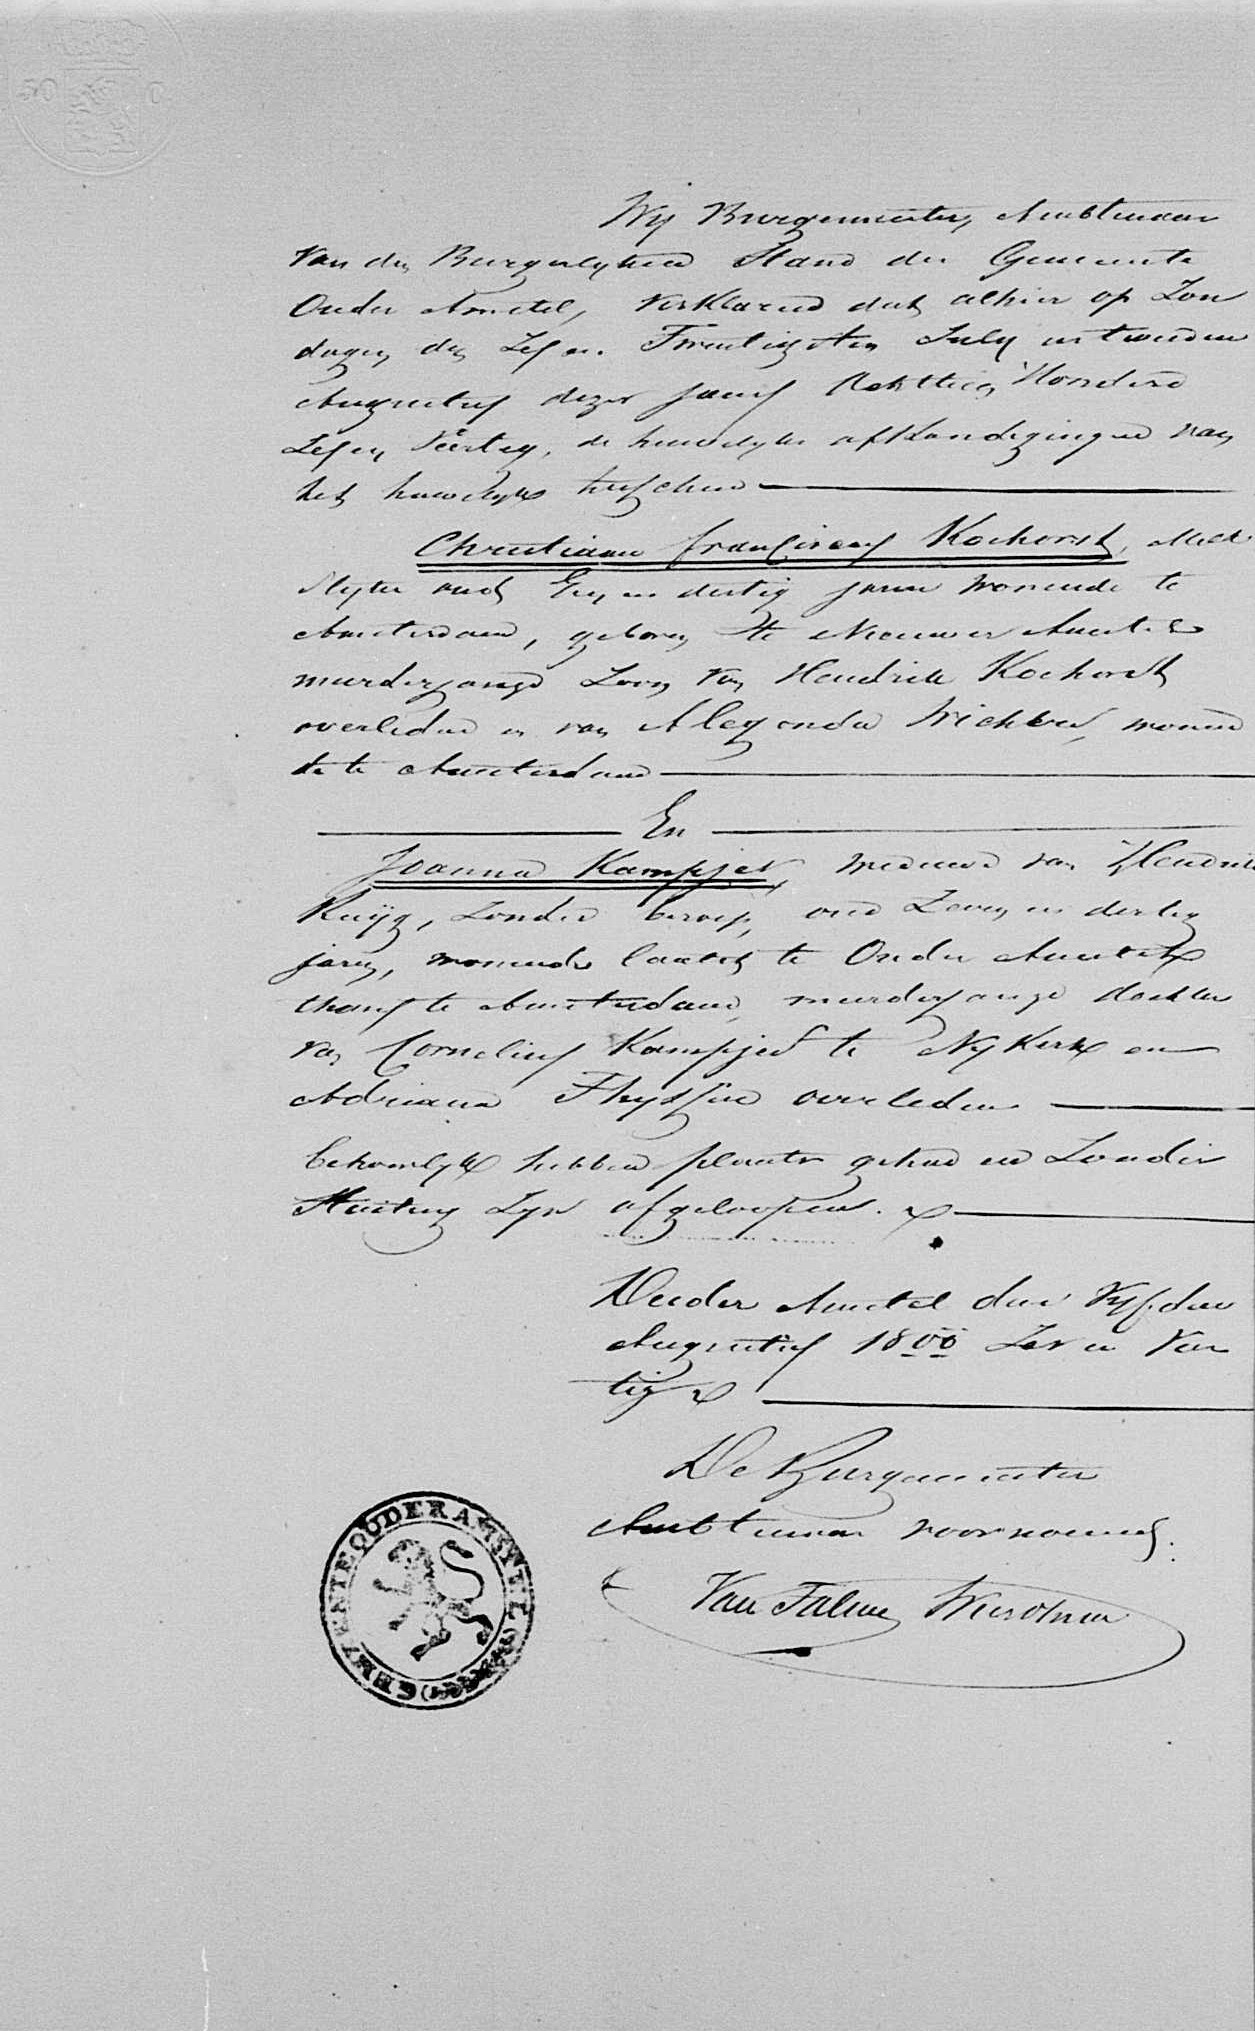 50 C
Wij Burgemeester, Ambtenaar
van den Burgerlyken Stand der Gemeente
Ouder Amstel, verklaren dat alhier op Zon
dagen den Zes en Twentigsten July en tweeden
Augustus dezer jaars Achttien Honderd
Zes en Veertig, de huwelyks afkondigingen van
het huwelyk tusschen
Christiaan Franciscus Kockorst, Melk
slyter oud en dertig jaren wonende te
Amsterdam, geboren te Nieuwer Amstel
meerderjarige Zoon van Hendrik Kockorst
overleden en van Alegonda wonen
de te Amsterdam
En
Joanna Kampjes, weduwe van Hendrik
Ruijg, Zonder beroep, oud Zeven en dertig
jaren, wonende laatst te Ouder Amstel
thans te Amsterdam, meerderjarige dochter
van Cornelius Kampjes te Nykerk en
Adriana Thyssen overleden
behoorlyk hebben plaats gehad en Zonder
Stuiting Zyn afgeloopen.
Ouder Amstel den Vyfden
Augustus 1800 Zes en Veer
tig
De Burgemeester
Ambtenaar voornoemd.
Van Talen
GEMEENTE OUDER AMSTEL